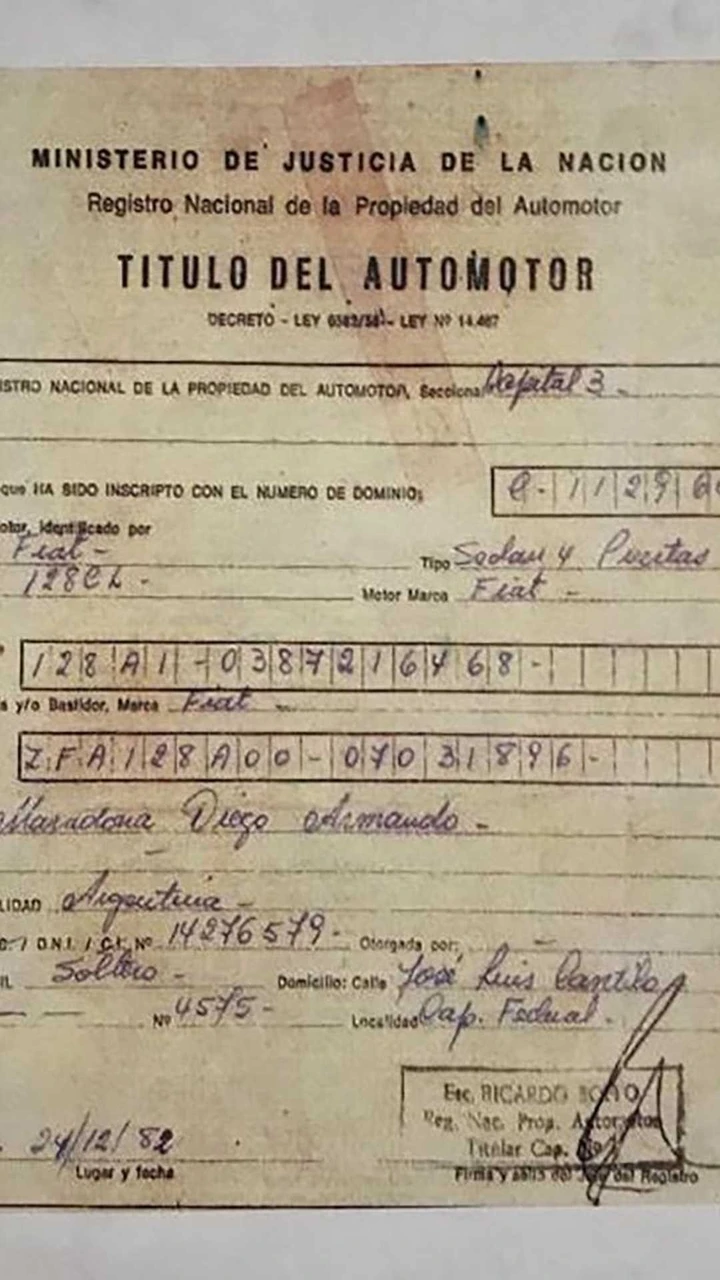 MINISTERIO DE JUSTICIA DE LA NACION
Registro Nacional de la Propiedad del Automotor
TITULO DEL AUTOMOTOR
DECRETO - LEY 6582/58 - LEY Nº 14.467
ISTRO NACIONAL DE LA PROPIEDAD DEL AUTOMOTOR, Seccional Capital 3 -
que HA SIDO INSCRIPTO CON EL NUMERO DE DOMINIO:
C-11296
otor, identificado por
Fiat - Tipo Sedan 4 Puertas
128CL - Motor Marca Fiat -
128A1-0387216468-
s y/o Bastidor, Marca Fiat -
ZFA128A00-07031896-
Maradona Diego Armando -
LIDAD Argentina -
D.N.I. / C.I. Nº 14276579- Otorgada por: -
IL Soltero - Domicilio: Calle José Luis Cantilo
Nº 4575- Localidad Cap. Federal.
Esc. RICARDO
Reg. Nac. Prop. Automotor
Titular Cap.
24/12/82
Lugar y fecha
Firma y sello del Jefe del Registro